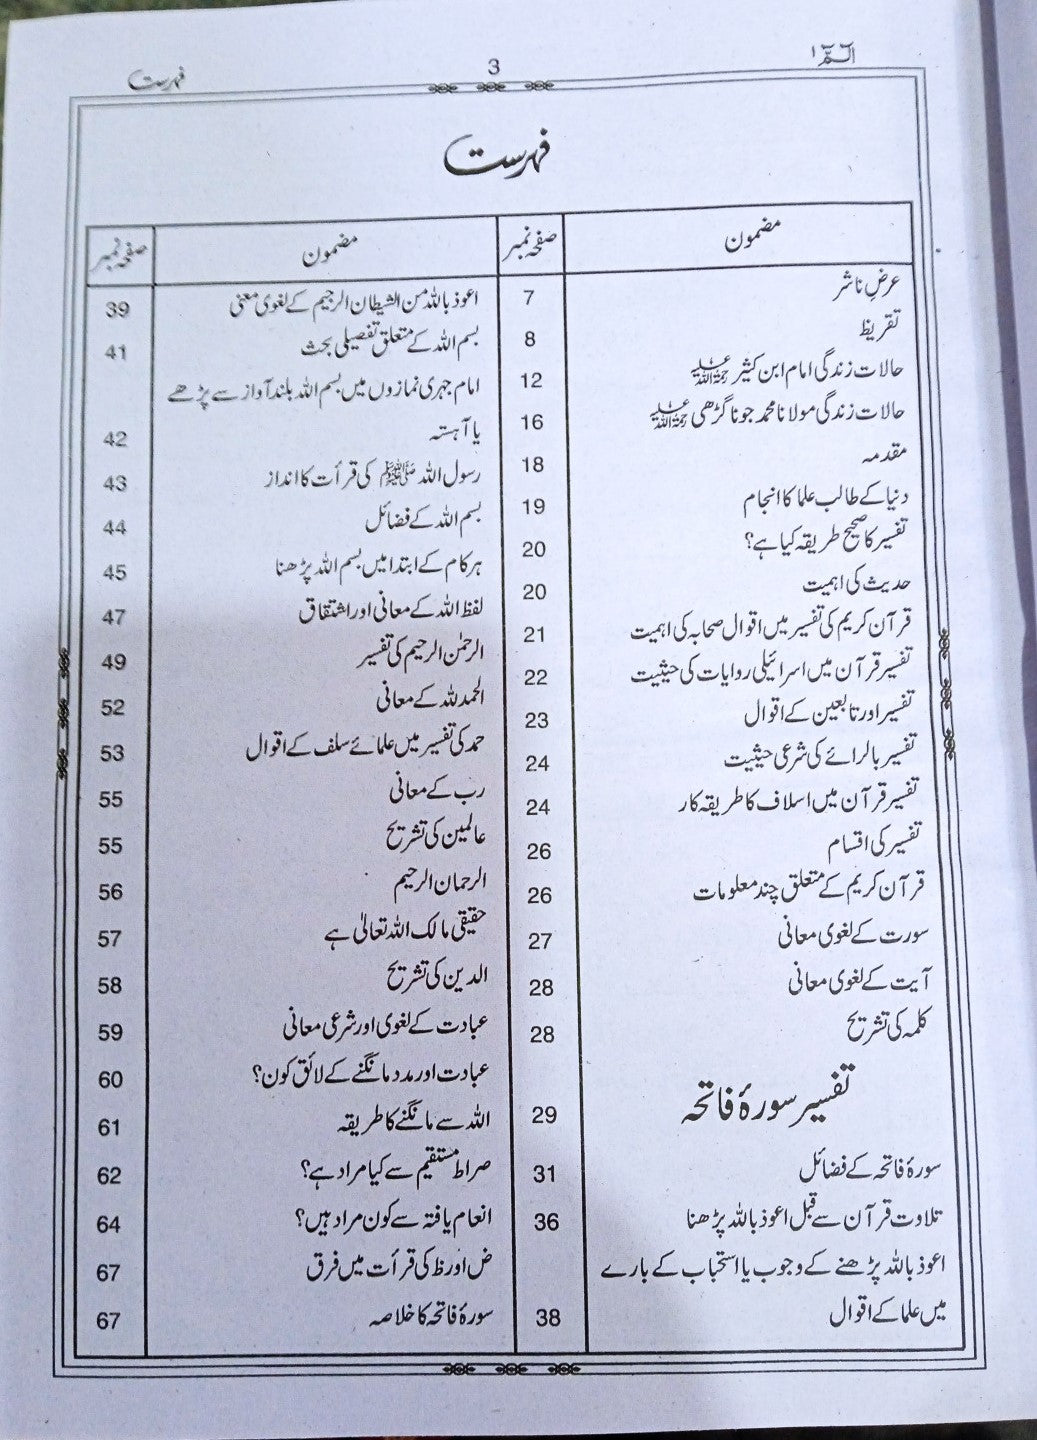 الٓمّٓ ۱
3
فہرست
فہرست
مضمون صفحہ نمبر
عرضِ ناشر 7
تقریظ 8
حالات زندگی امام ابن کثیر رحمۃ اللہ علیہ 12
حالات زندگی مولانا محمد جونا گڑھی رحمۃ اللہ علیہ 16
مقدمہ 18
دنیا کے طالب علما کا انجام 19
تفسیر کا صحیح طریقہ کیا ہے؟ 20
حدیث کی اہمیت 20
قرآن کریم کی تفسیر میں اقوال صحابہ کی اہمیت 21
تفسیر قرآن میں اسرائیلی روایات کی حیثیت 22
تفسیر اور تابعین کے اقوال 23
تفسیر بالرائے کی شرعی حیثیت 24
تفسیر قرآن میں اسلاف کا طریقہ کار 24
تفسیر کی اقسام 26
قرآن کریم کے متعلق چند معلومات 26
سورت کے لغوی معانی 27
آیت کے لغوی معانی 28
کلمہ کی تشریح 28
تفسیر سورۂ فاتحہ 29
سورۂ فاتحہ کے فضائل 31
تلاوت قرآن سے قبل اعوذ باللہ پڑھنا 36
اعوذ باللہ پڑھنے کے وجوب یا استحباب کے بارے
میں علما کے اقوال 38
مضمون صفحہ نمبر
اعوذ باللہ من الشیطان الرجیم کے لغوی معنی 39
بسم اللہ کے متعلق تفصیلی بحث 41
امام جہری نمازوں میں بسم اللہ بلند آواز سے پڑھے
یا آہستہ 42
رسول اللہ ﷺ کی قرأت کا انداز 43
بسم اللہ کے فضائل 44
ہر کام کے ابتدا میں بسم اللہ پڑھنا 45
لفظ اللہ کے معانی اور اشتقاق 47
الرحمٰن الرحیم کی تفسیر 49
الحمد للہ کے معانی 52
حمد کی تفسیر میں علمائے سلف کے اقوال 53
رب کے معانی 55
عالمین کی تشریح 55
الرحمان الرحیم 56
حقیقی مالک اللہ تعالیٰ ہے 57
الدین کی تشریح 58
عبادت کے لغوی اور شرعی معانی 59
عبادت اور مدد مانگنے کے لائق کون؟ 60
اللہ سے مانگنے کا طریقہ 61
صراط مستقیم سے کیا مراد ہے؟ 62
انعام یافتہ سے کون مراد ہیں؟ 64
ض اور ظ کی قرأت میں فرق 67
سورۂ فاتحہ کا خلاصہ 67